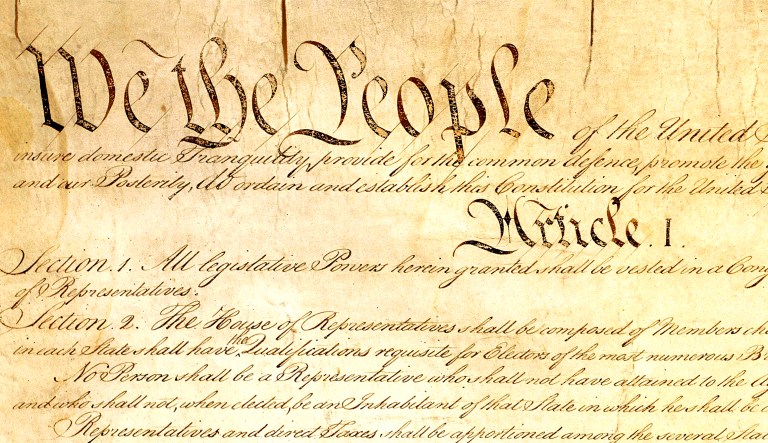 We the People of the United
insure domestic Tranquility, provide for the common defence, promote the
and our Posterity, do ordain and establish this Constitution for the United
Article. I.
Section. 1. All legislative Powers herein granted shall be vested in a Cong
of Representatives.
Section. 2. The House of Representatives shall be composed of Members cho
in each State shall have the Qualifications requisite for Electors of the most numerous Br
No Person shall be a Representative who shall not have attained to the A
and who shall not, when elected, be an Inhabitant of that State in which he shall be c
Representatives and direct Taxes shall be apportioned among the several Stat